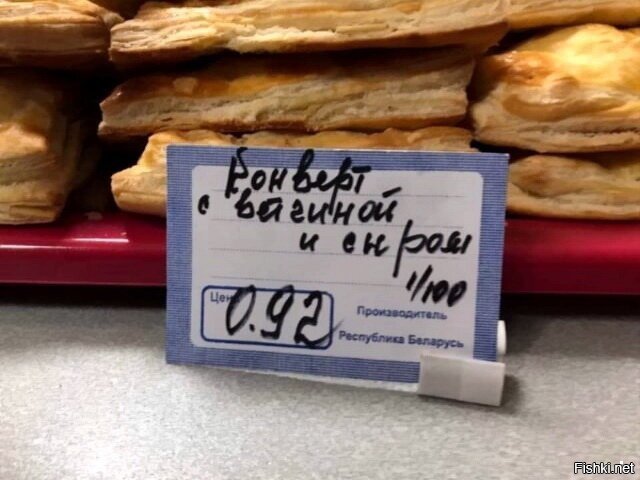 Конверт
с ветчиной
и сыром
1/100
Цен 0.92
Производитель
Республика Беларусь
Fishki.net